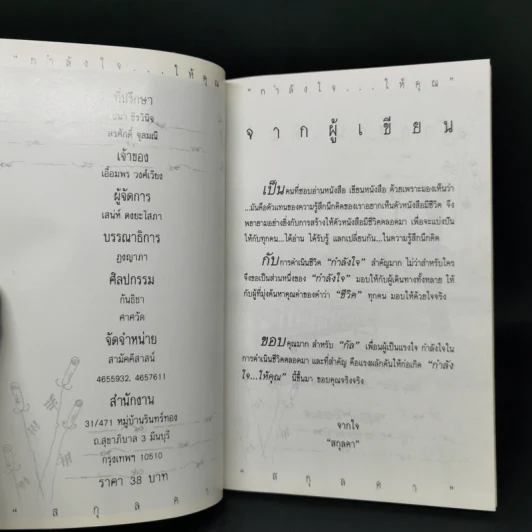 "กำลังใจ...ให้คุณ"
ที่ปรึกษา
ธีรวินิจ
สรศักดิ์ จุลมณี
เจ้าของ
เอื้อมพร วงศ์เวียง
ผู้จัดการ
เสน่ห์ ดงยะโสภา
บรรณาธิการ
ภูงญาภา
ศิลปกรรม
กันธิชา
ศาศวัต
จัดจำหน่าย
สามัคคีสาสน์
4655932, 4657611
สำนักงาน
31/471 หมู่บ้านรินทร์ทอง
ถ.สุขาภิบาล 3 มีนบุรี
กรุงเทพฯ 10510
ราคา 38 บาท
"สกุลดา"
"กำลังใจ...ให้คุณ"
จากผู้เขียน
เป็นคนที่ชอบอ่านหนังสือ เขียนหนังสือ ด้วยเพราะมองเห็นว่า
...มันคือตัวแทนของความรู้สึกนึกคิดของเราอยากเห็นตัวหนังสือมีชีวิต จึง
พยายามอย่างยิ่งกับการสร้างให้ตัวหนังสือมีชีวิตตลอดมา เพื่อจะแบ่งปัน
ให้กับทุกคน...ได้อ่าน ได้รับรู้ แลกเปลี่ยนกัน...ในความรู้สึกนึกคิด
กับการดำเนินชีวิต "กำลังใจ" สำคัญมาก ไม่ว่าสำหรับใคร
จึงขอเป็นส่วนหนึ่งของ "กำลังใจ" มอบให้กับผู้เดินทางทั้งหลาย ให้
กับผู้ที่มุ่งค้นหาคุณค่าของคำว่า "ชีวิต" ทุกคน มอบให้ด้วยใจจริง
ขอบคุณมาก สำหรับ "กัล" เพื่อนผู้เป็นแรงใจ กำลังใจใน
การดำเนินชีวิตตลอดมา และที่สำคัญ คือแรงผลักดันให้ก่อเกิด "กำลัง
ใจ...ให้คุณ" นี้ขึ้นมา ขอบคุณจริงจริง
จากใจ
"สกุลดา"
"สกุลดา"